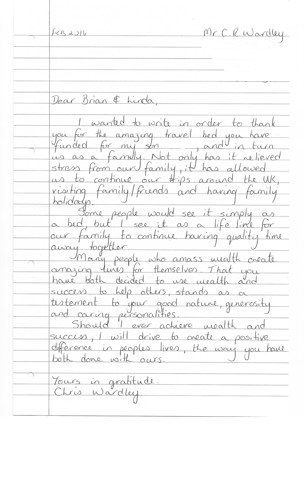 Feb 2016
Mr C.R Wardley
Dear Brian & Linda,
I wanted to write in order to thank
you for the amazing travel bed you have
funded for my son , and in turn
us as a family. Not only has it relieved
stress from our family, it has allowed
us to continue our trips around the UK,
visiting family/friends and having family
holidays.
Some people would see it simply as
a bed, but I see it as a life line for
our family to continue having quality time
away together
Many people who amass wealth create
amazing lives for themselves. That you
have both decided to use wealth and
success to help others, stands as a
testement to your good nature, generosity
and caring personalities.
Should I ever achieve wealth and
success, I will drive to create a positive
difference in peoples lives, the way you have
both done with ours.
Yours in gratitude.
Chris Wardley